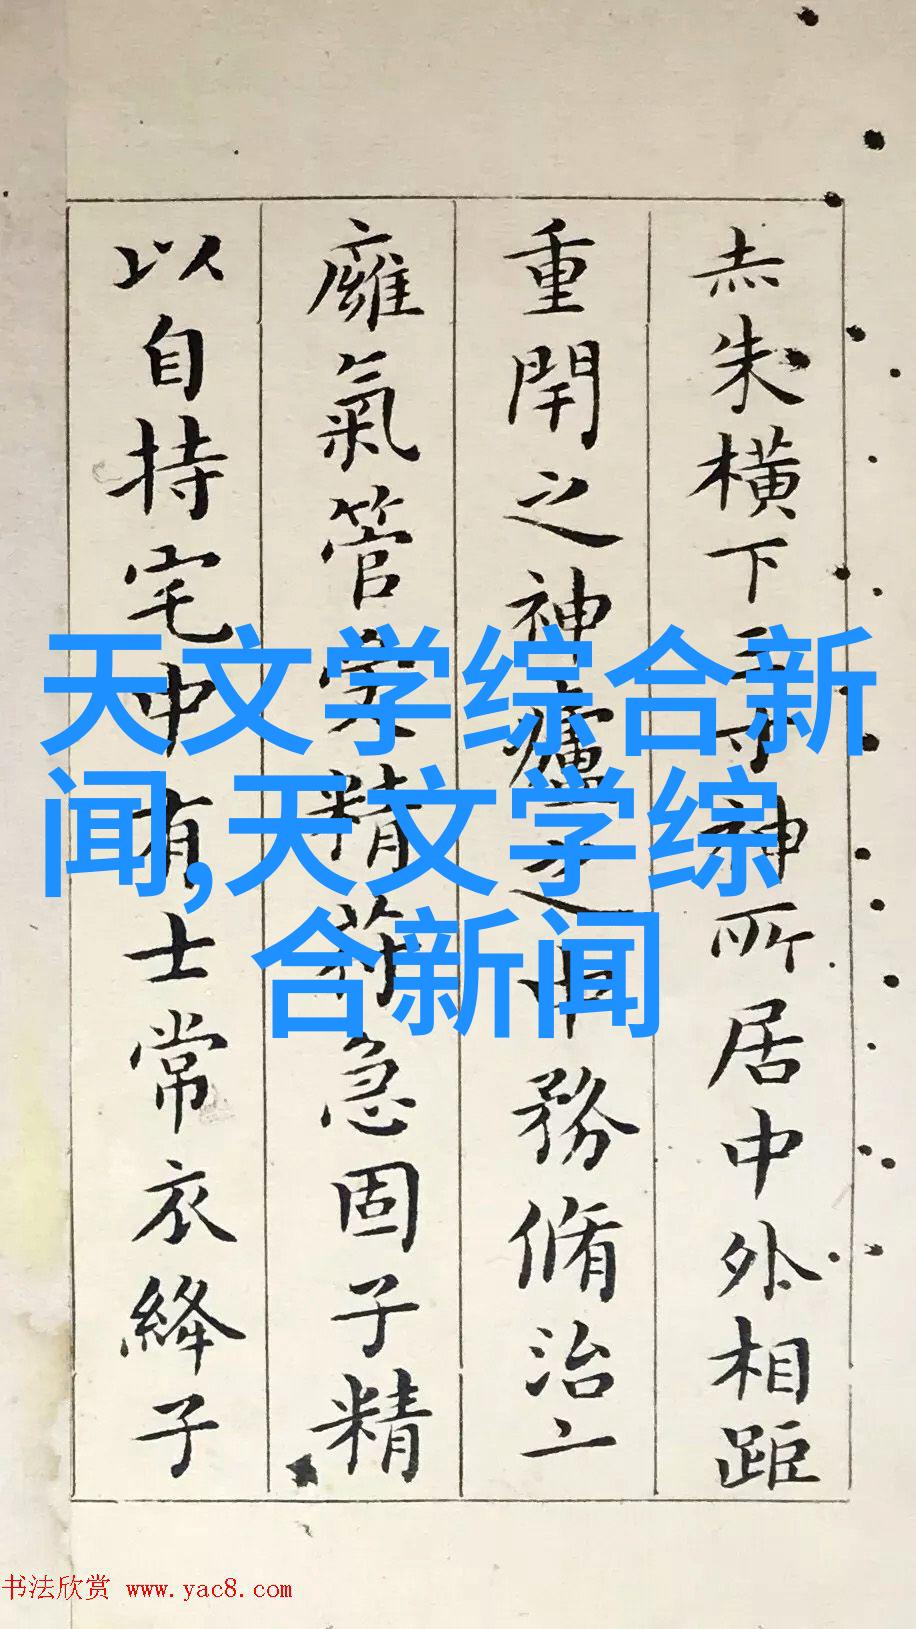 赤朱橫下三寸神所居中外相距
重閇之神廬之中務脩治
廱氣管受精符急固子精
以自持宅中有士常衣絳子
天文学综合新
闻,天文学综
合新闻
书法欣赏 www.yac8.com